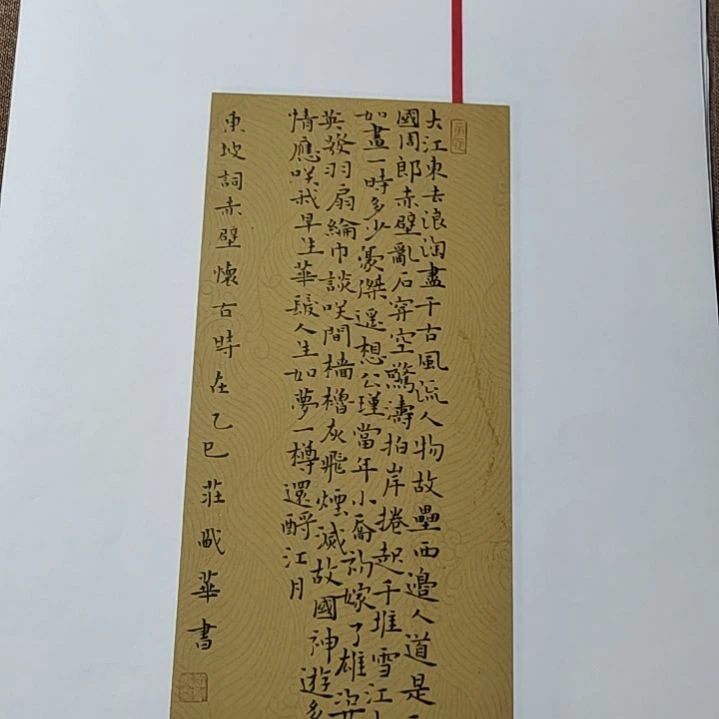 大江東去浪淘盡千古風流人物故壘西邊人道是
國周郎赤壁亂石穿空驚濤拍岸捲起千堆雪江
如畫一時多少豪傑遙想公瑾當年小喬初嫁了雄姿
英發羽扇綸巾談咲間檣櫓灰飛煙滅故國神遊多
情應咲我早生華髮人生如夢一樽還酹江月
東坡詞赤壁懷古時在乙巳莊華書